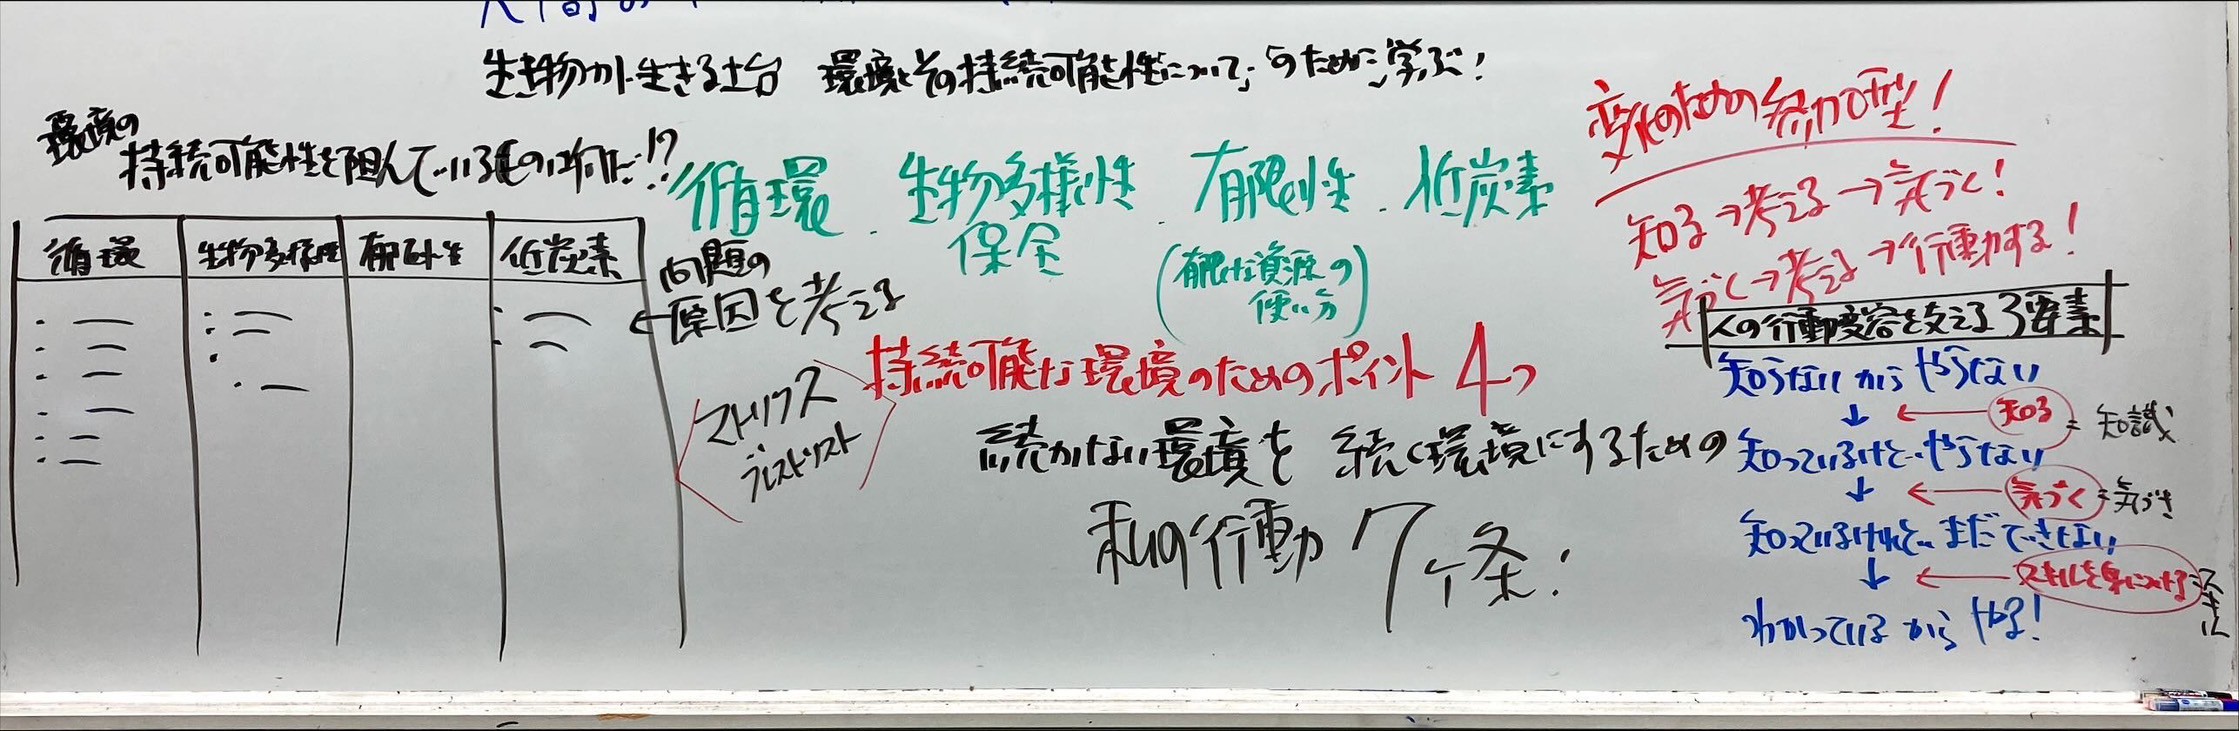 人間の
生き物が生きる土台 環境とその持続可能性について、のために学ぶ!
環境の
持続可能性を阻んでいるものは何だ!?
循環 生物多様性 有限性 低炭素
問題の
原因を考える
循環.生物多様性保全.有限性.低炭素
(有限な資源の
使い方)
持続可能な環境のためのポイント4つ
マトリクス
ブレストリスト
続かない環境を 続く環境にするための
私の行動 7ヶ条!
変化のための参加型!
知る→考える→気づく!
気づく→考える→行動する!
人の行動変容を支える3要素
知らないからやらない
↓ ← 知る = 知識
知っているけどやらない
↓ ← 気づく = 気づき
知っているけれど、まだできない
↓ ← スキルを身につける = スキル
わかっているからやる!